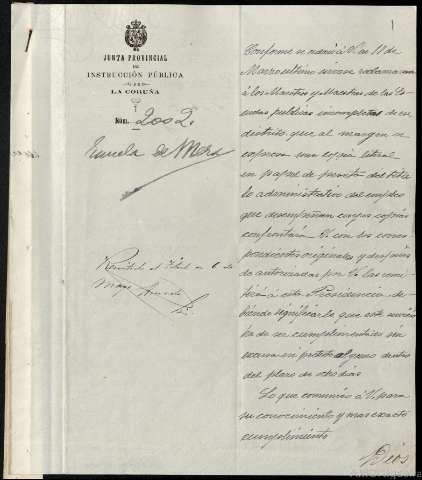 JUNTA PROVINCIAL
DE
INSTRUCCIÓN PÚBLICA
DE
LA CORUÑA
Núm. 2002.
Escuela de Mera
Remitido el título en 6 de
Mayo
1
Conforme se ordenó á V. en 11 de
Marzo último sírvase reclamar
á los Maestros y Maestras de las Es-
cuelas públicas incompletas de ese
distrito, que al margen se
expresa una copia literal
en papel de peseta del títu-
lo administrativo del empleo
que desempeñan cuyas copias
confrontará V. con los corres-
pondientes originales y después
de autorizadas por V. las remi-
tirá á esta Presidencia, de-
biendo significarle que este servicio
ha de ser cumplimentado sin
excusa ni pretexto alguno dentro
del plazo de ocho días
Lo que comunico á V. para
su conocimiento y mas exacto
cumplimiento
Dios